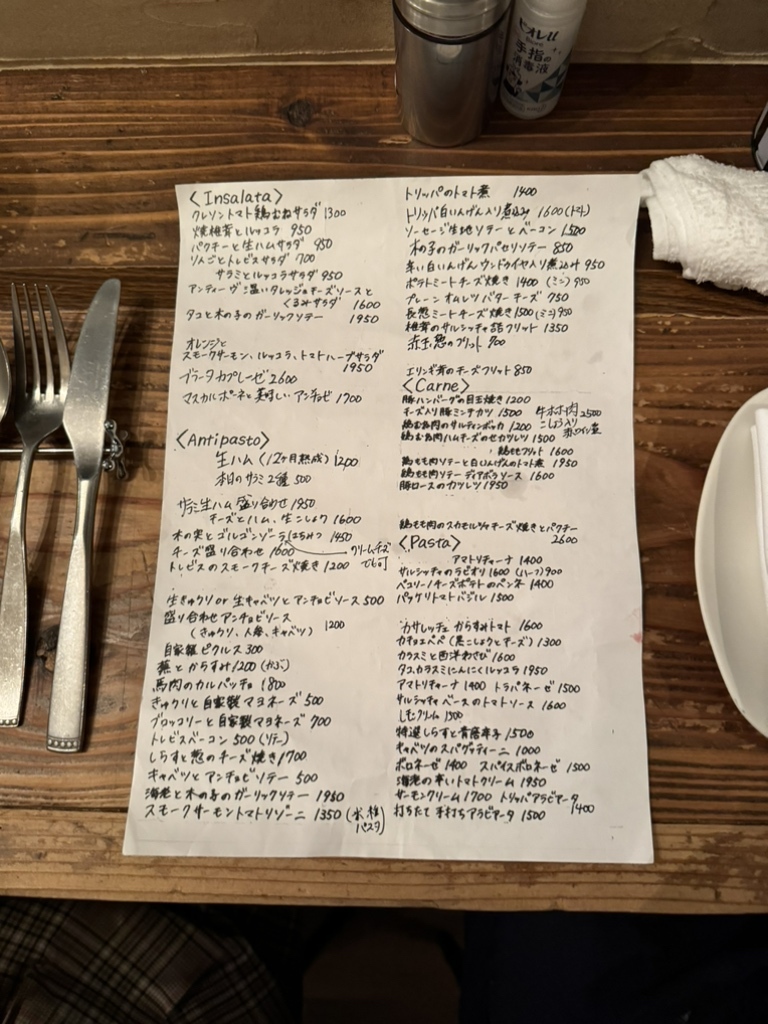 ビオレu
手指の
消毒液
〈Insalata〉
クレソントマト鶏むねサラダ 1300
焼椎茸とルッコラ 950
パクチーと生ハムサラダ 950
りんごとトレビスサラダ 700
サラミとルッコラサラダ 950
アンディーヴ 温いタレッジョチーズソースと
くるみサラダ 1600
タコと木の子のガーリックソテー 1950
オレンジと
スモークサーモン、ルッコラ、トマトハーブサラダ
1950
ブラータカプレーゼ 2600
マスカルポーネと美味しいアンチョビ 1700
〈Antipasto〉
生ハム (12ヶ月熟成) 1200
本日のサラミ2種 500
サラミ生ハム盛り合わせ 1950
チーズとハム、生こしょう 1600
木の実とゴルゴンゾーラはちみつ 1450
チーズ盛り合わせ 1600
クリームチーズ
でも可
トレビスのスモークチーズ焼き 1200
生きゅうり or 生キャベツとアンチョビソース 500
盛り合わせアンチョビソース
(きゅうり、人参、キャベツ) 1200
自家製ピクルス 300
蕪とからすみ 1200 (かぶ)
馬肉のカルパッチョ 1800
きゅうりと自家製マヨネーズ 500
ブロッコリーと自家製マヨネーズ 700
トレビスベーコン 500 (ソテー)
しらすと葱のチーズ焼き 1700
キャベツとアンチョビソテー 500
海老と木の子のガーリックソテー 1950
スモークサーモントマトリゾーニ 1350 (米粒
パスタ)
トリッパのトマト煮 1400
トリッパ白いんげん入り煮込み 1600 (トマト)
ソーセージ生地ソテーとベーコン 1500
木の子のガーリックパセリソテー 850
辛い白いんげんウンドゥイヤ入り煮込み 950
ポテトミートチーズ焼き 1400 (ミニ) 950
プレーンオムレツバターチーズ 750
長葱ミートチーズ焼き 1500 (ミニ) 950
椎茸のサルシッチャ詰フリット 1350
赤玉葱のフリット 700
エリンギ茸のチーズフリット 850
〈Carne〉
豚ハンバーグの目玉焼き 1200
チーズ入り豚ミンチカツ 1500
牛ホホ肉 2500
こしょう入り
赤ワイン煮
鶏むね肉のサルティンボッカ 1200
鶏むね肉ハムチーズのせカツレツ 1500
鶏ももフリット 1600
鶏もも肉ソテーと白いんげんのトマト煮 1950
鶏もも肉ソテーディアボラソース 1600
豚ロースのカツレツ 1950
鶏もも肉のスカモルツァチーズ焼きとパクチー
2600
〈Pasta〉
アマトリチャーナ 1400
サルシッチャのラビオリ 1600 (ハーフ) 900
ペコリーノチーズポテトのペンネ 1400
パッケリトマトバジル 1500
カサレッチェ からすみトマト 1600
カチョエペペ (黒こしょうとチーズ) 1300
カラスミと西洋わさび 1600
タコ、カラスミにんにくルッコラ 1950
アマトリチャーナ 1400 トラパネーゼ 1500
サルシッチャベースのトマトソース 1600
1500
特選しらすと青唐辛子 1500
キャベツのスパゲッティーニ 1000
ボロネーゼ 1400 スパイスボロネーゼ 1500
海老の辛いトマトクリーム 1950
サーモンクリーム 1700 トリッパアラビアータ
1400
打ちたて手打ちアラビアータ 1500